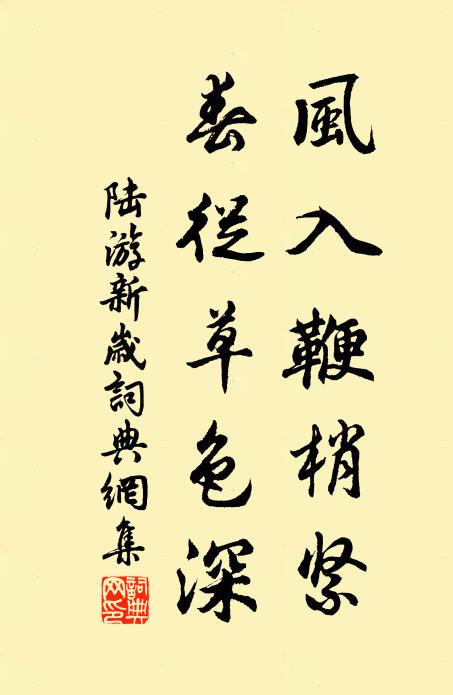 風入鞭梢緊
春從草色深
陸游新歲詞典網集
詞典网印